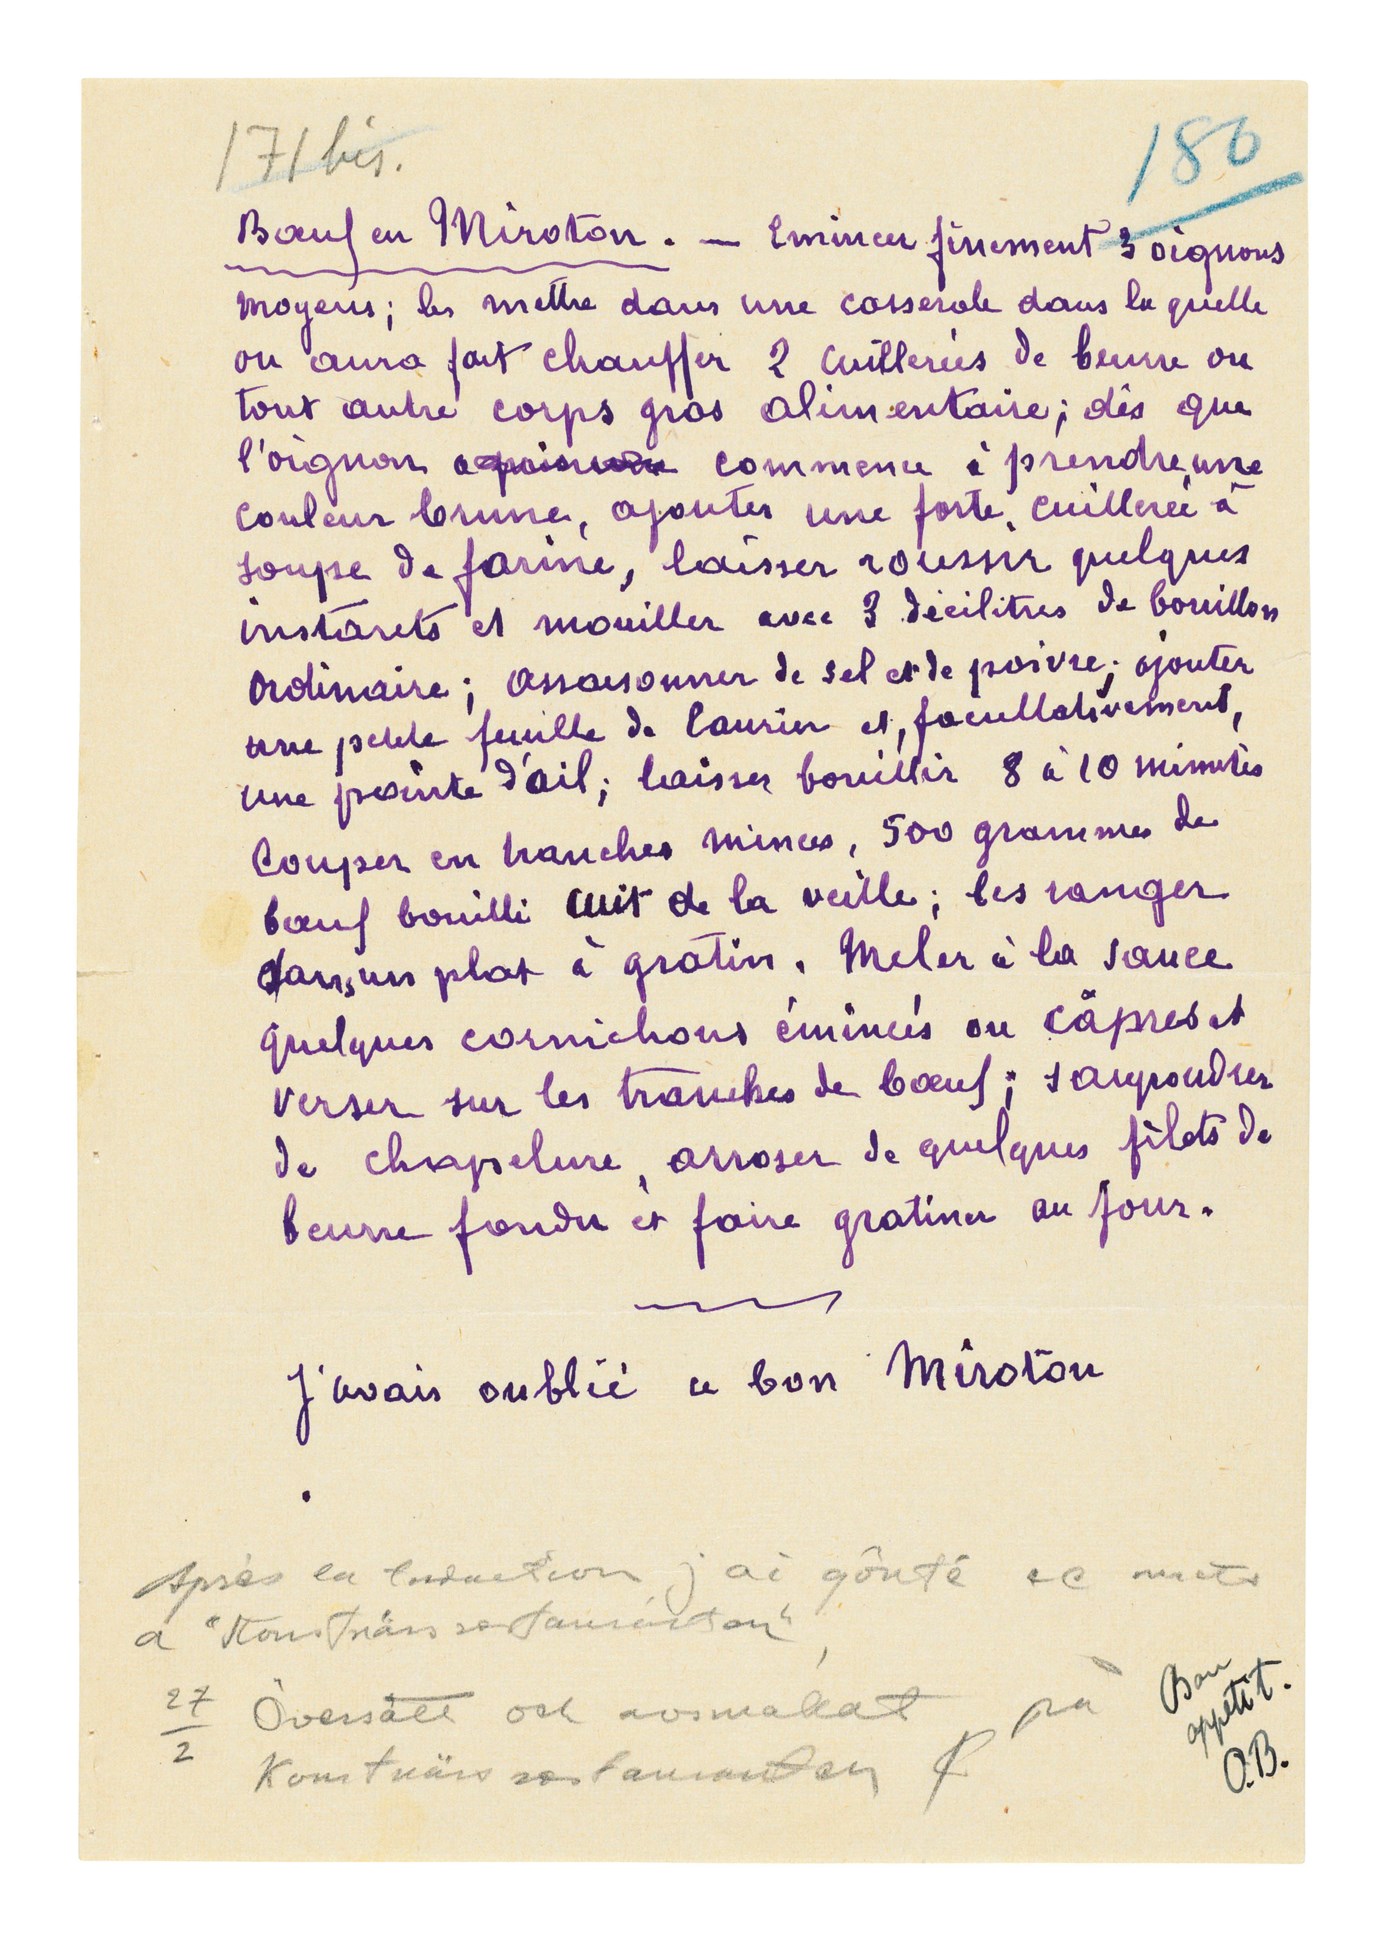 171 bis.
186
Bœuf en Miroton. — Emincer finement 3 oignons
moyens; les mettre dans une casserole dans la quelle
on aura fait chauffer 2 cuillerées de beurre ou
tout autre corps gras alimentaire; dès que
l'oignon commence à prendre une
couleur brune, ajouter une forte cuillerée à
soupe de farine, laisser roussir quelques
instants et mouiller avec 3 décilitres de bouillon
ordinaire; assaisonner de sel et de poivre; ajouter
une petite feuille de laurier et, facultativement,
une pointe d'ail; laisser bouillir 8 à 10 minutes
Couper en tranches minces, 500 grammes de
bœuf bouilli cuit de la veille; les ranger
dans un plat à gratin. Meler à la sauce
quelques cornichons émincés ou câpres et
verser sur les tranches de bœuf; saupoudrer
de chapelure, arroser de quelques filets de
beurre fondu et faire gratiner au four.
J'avais oublié ce bon Miroton
Après la traduction j'ai goûté ce mets
a "Konstnärsrestauranten",
27/2 Översatt och avsmakat på
Konstnärsrestauranten
Bon
appétit.
O.B.